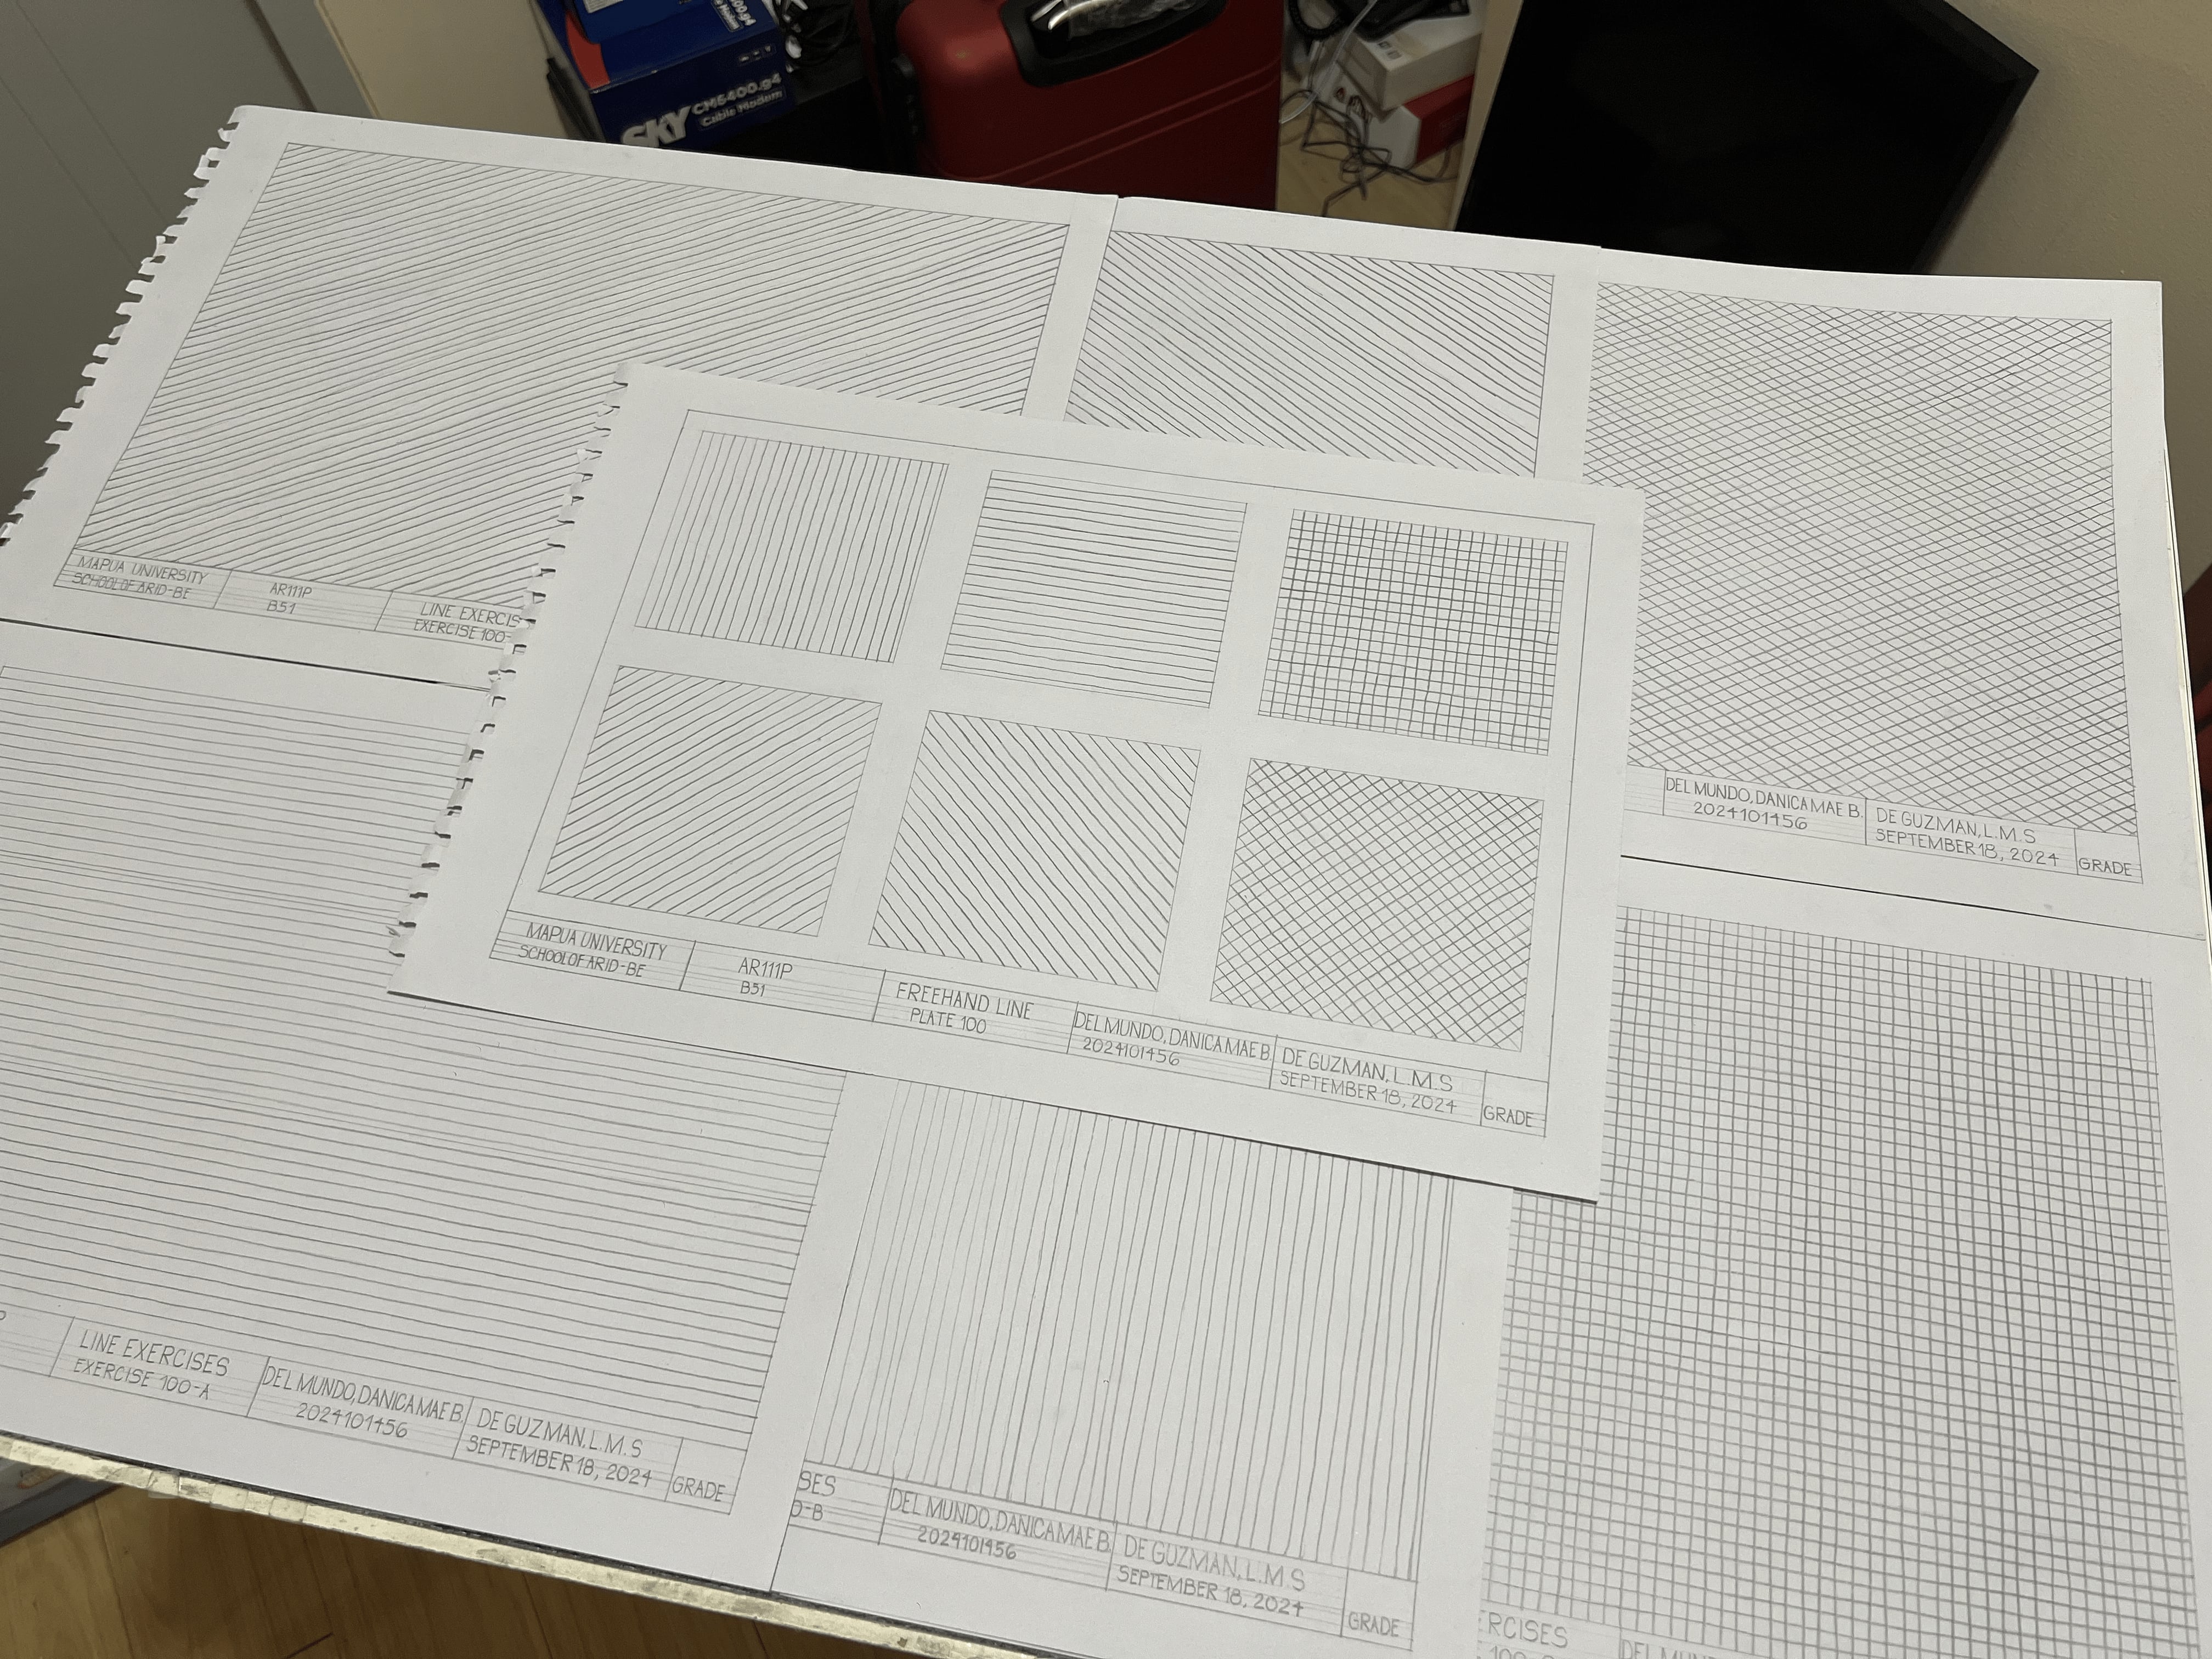 SKY CM5400.g4
Cable Modem
MAPUA UNIVERSITY
SCHOOL OF ARID-BE
AR111P
B51
LINE EXERCIS
EXERCISE 100-
DEL MUNDO, DANICA MAE B.
2024101456
DE GUZMAN, L.M.S
SEPTEMBER 18, 2024
GRADE
MAPUA UNIVERSITY
SCHOOL OF ARID-BE
AR111P
B51
FREEHAND LINE
PLATE 100
DEL MUNDO, DANICA MAE B.
2024101456
DE GUZMAN, L.M.S
SEPTEMBER 18, 2024
GRADE
LINE EXERCISES
EXERCISE 100-A
DEL MUNDO, DANICA MAE B.
2024101456
DE GUZMAN, L.M.S
SEPTEMBER 18, 2024
GRADE
SES
0-B
DEL MUNDO, DANICA MAE B.
2024101456
DE GUZMAN, L.M.S
SEPTEMBER 18, 2024
GRADE
ERCISES
DEL MUN